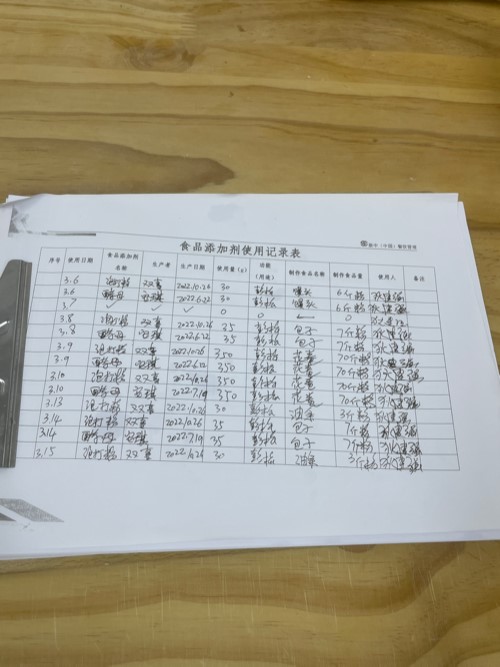 食品添加剂使用记录表
序号 使用日期 食品添加剂名称 生产者 生产日期 使用量(g) 功能(用途) 制作食品名称 制作食品量 使用人 备注
3.6 泡打粉 双喜 2022.10.26 30 膨松 馒头 6斤粉
3.6 酵母 安琪 2022.6.22 30 膨松 馒头 6斤粉
3.7 ✓ ✓ ✓ 0 0 0
3.8 泡打粉 双喜 2022.10.26 35 膨松 包子 7斤粉
3.8 酵母 安琪 2022.6.22 35 膨松 包子 7斤粉
3.9 泡打粉 双喜 2022.10.26 350 膨松 花卷 70斤粉
3.9 酵母 安琪 2022.6.22 350 膨松 花卷 70斤粉
3.10 泡打粉 双喜 2022.10.26 350 膨松 花卷 70斤粉
3.10 酵母 安琪 2022.7.19 350 膨松 花卷 70斤粉
3.13 泡打粉 双喜 2022.10.26 30 膨松 油条 3斤粉
3.14 泡打粉 双喜 2022.10.26 35 膨松 包子 7斤粉
3.14 酵母 安琪 2022.7.19 35 膨松 包子 7斤粉
3.15 泡打粉 双喜 2022.10.26 30 膨松 油条 3斤粉